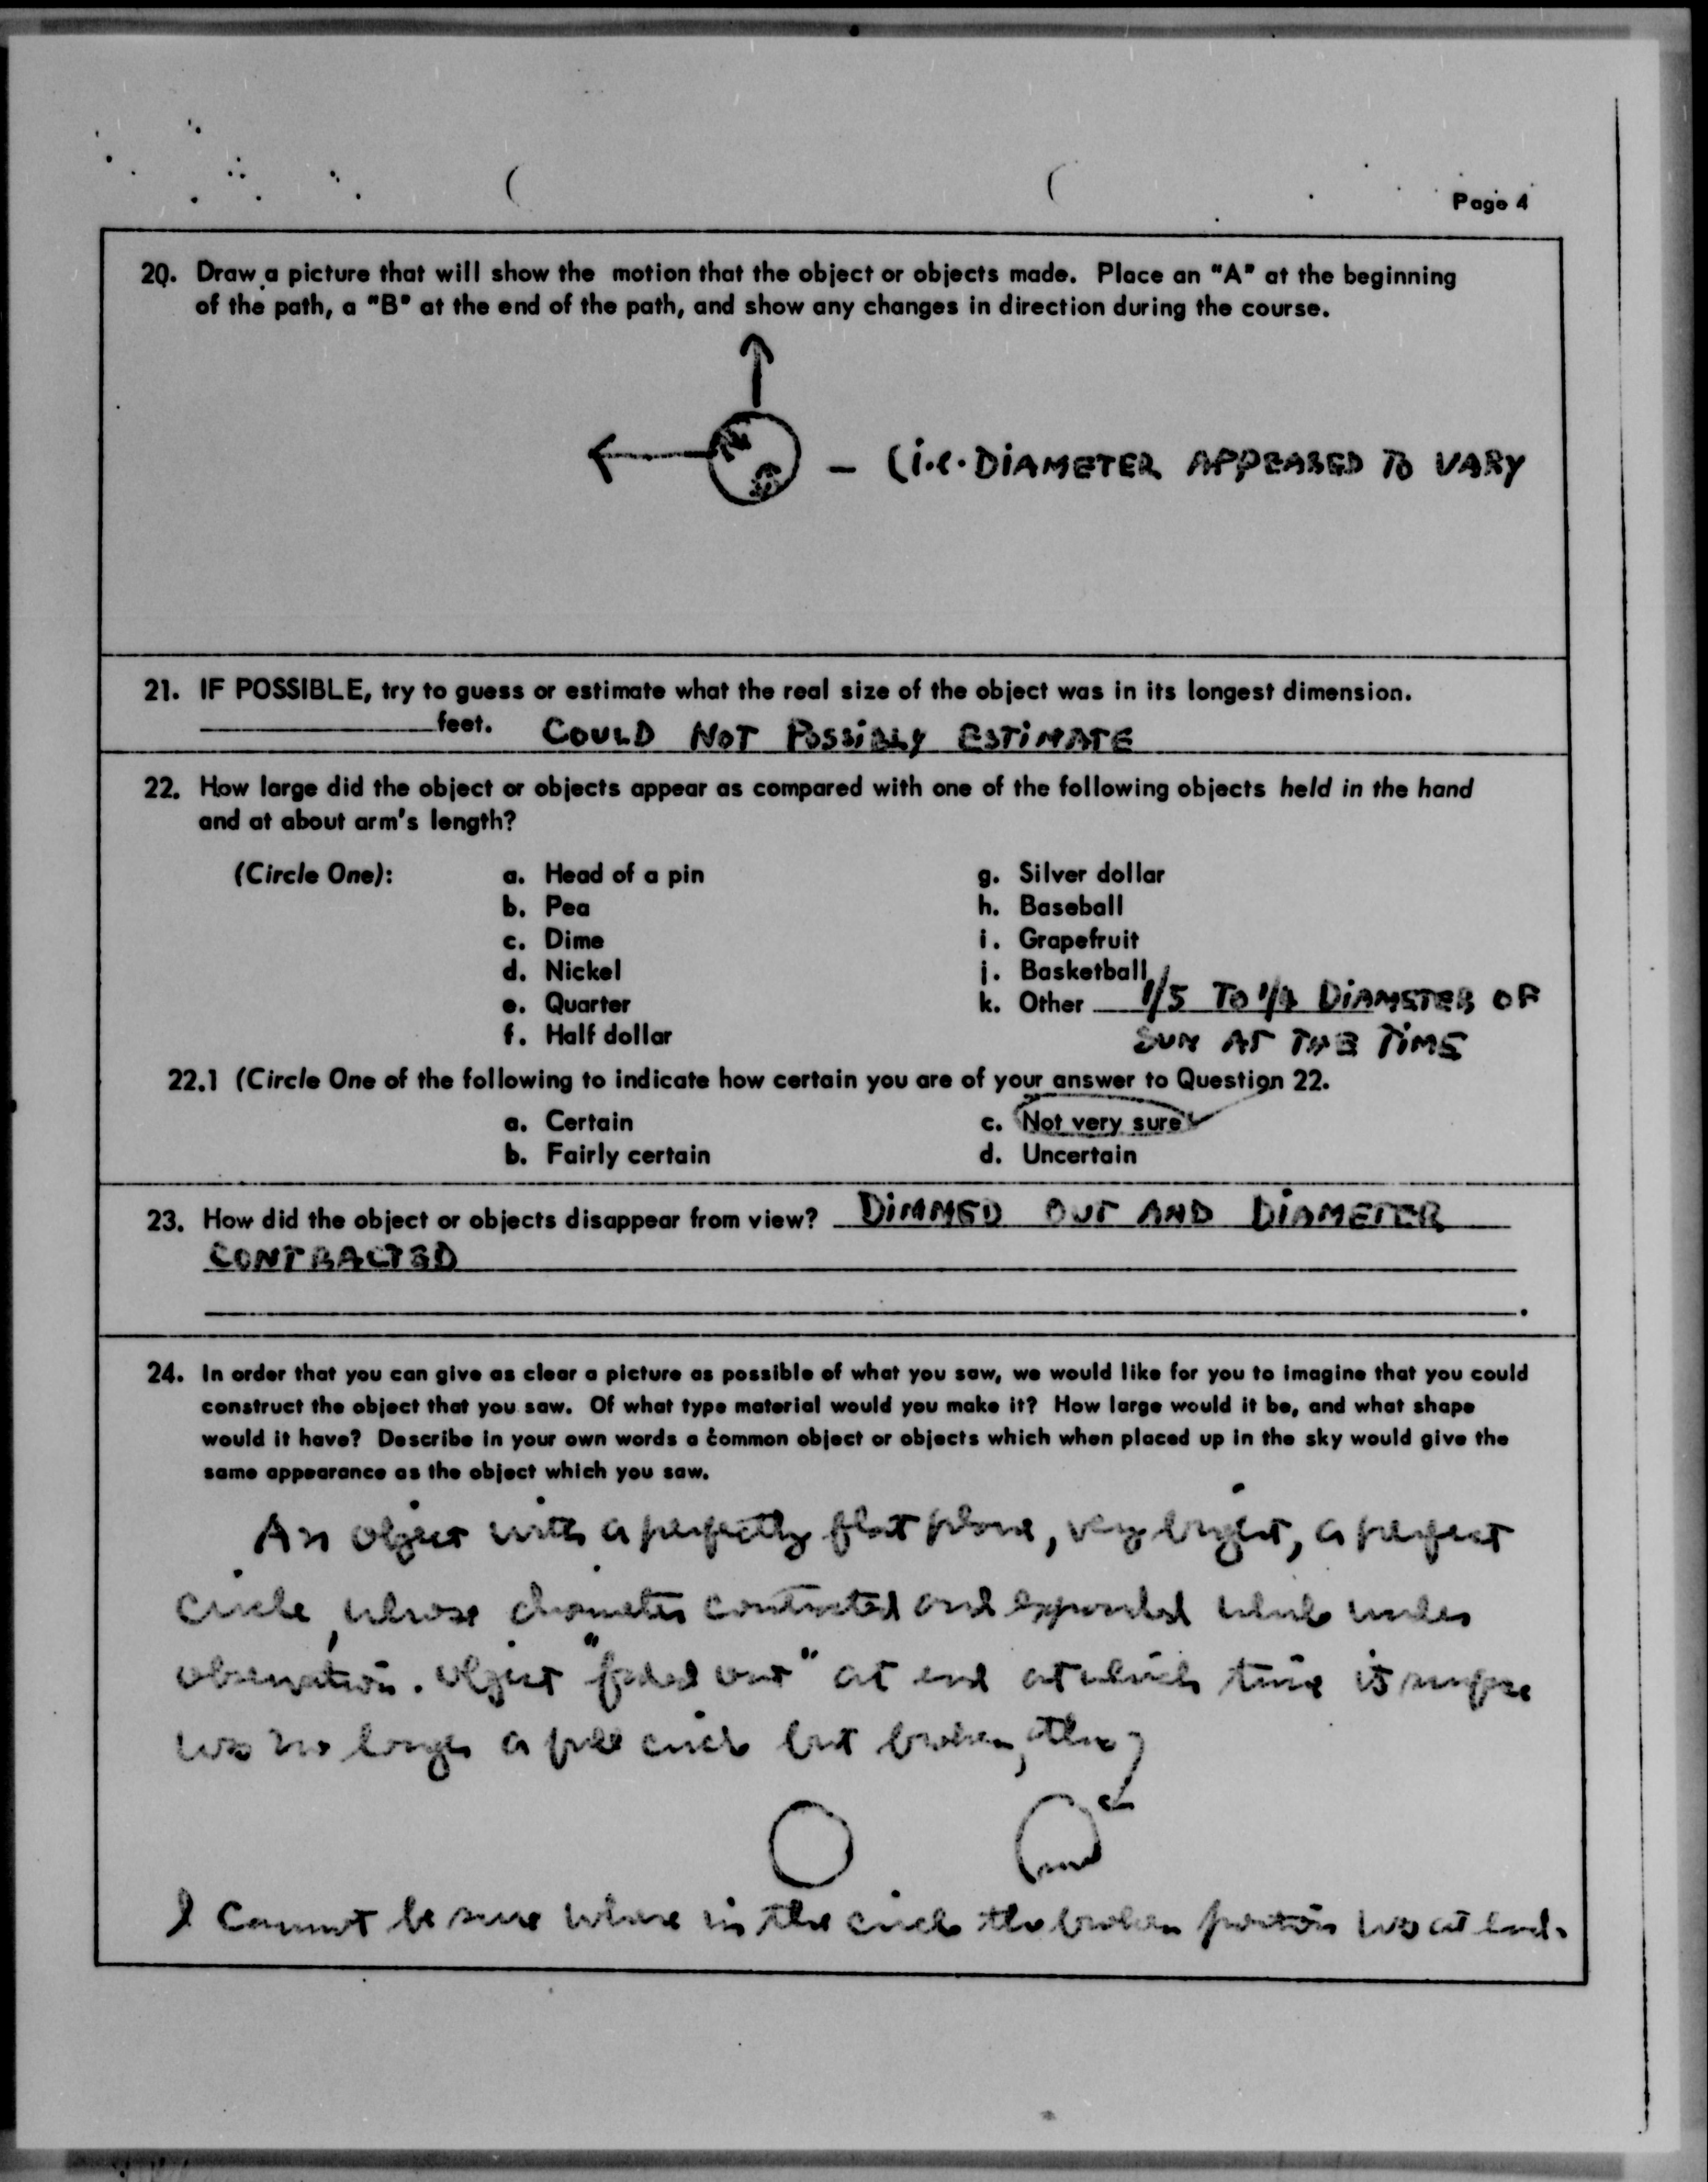 Page 4
20. Draw a picture that will show the motion that the object or objects made. Place an "A" at the beginning
of the path, a "B" at the end of the path, and show any changes in direction during the course.
– (i.e. DIAMETER APPEARED TO VARY
21. IF POSSIBLE, try to guess or estimate what the real size of the object was in its longest dimension.
____________feet. COULD NOT POSSIBLY ESTIMATE
22. How large did the object or objects appear as compared with one of the following objects held in the hand
and at about arm's length?
(Circle One): a. Head of a pin g. Silver dollar
b. Pea h. Baseball
c. Dime i. Grapefruit
d. Nickel j. Basketball
e. Quarter k. Other 1/5 TO 1/4 DIAMETER OF
f. Half dollar SUN AT THE TIME
22.1 (Circle One of the following to indicate how certain you are of your answer to Question 22.
a. Certain c. Not very sure
b. Fairly certain d. Uncertain
23. How did the object or objects disappear from view? DIMMED OUT AND DIAMETER
CONTRACTED
24. In order that you can give as clear a picture as possible of what you saw, we would like for you to imagine that you could
construct the object that you saw. Of what type material would you make it? How large would it be, and what shape
would it have? Describe in your own words a common object or objects which when placed up in the sky would give the
same appearance as the object which you saw.
An object with a perfectly flat plane, very bright, a perfect
circle, whose diameter contracted and expanded while under
observation. Object "faded out" at end at which time its
was no longer a full circle but broken,
I cannot be sure where in the circle the broken portion was at end.